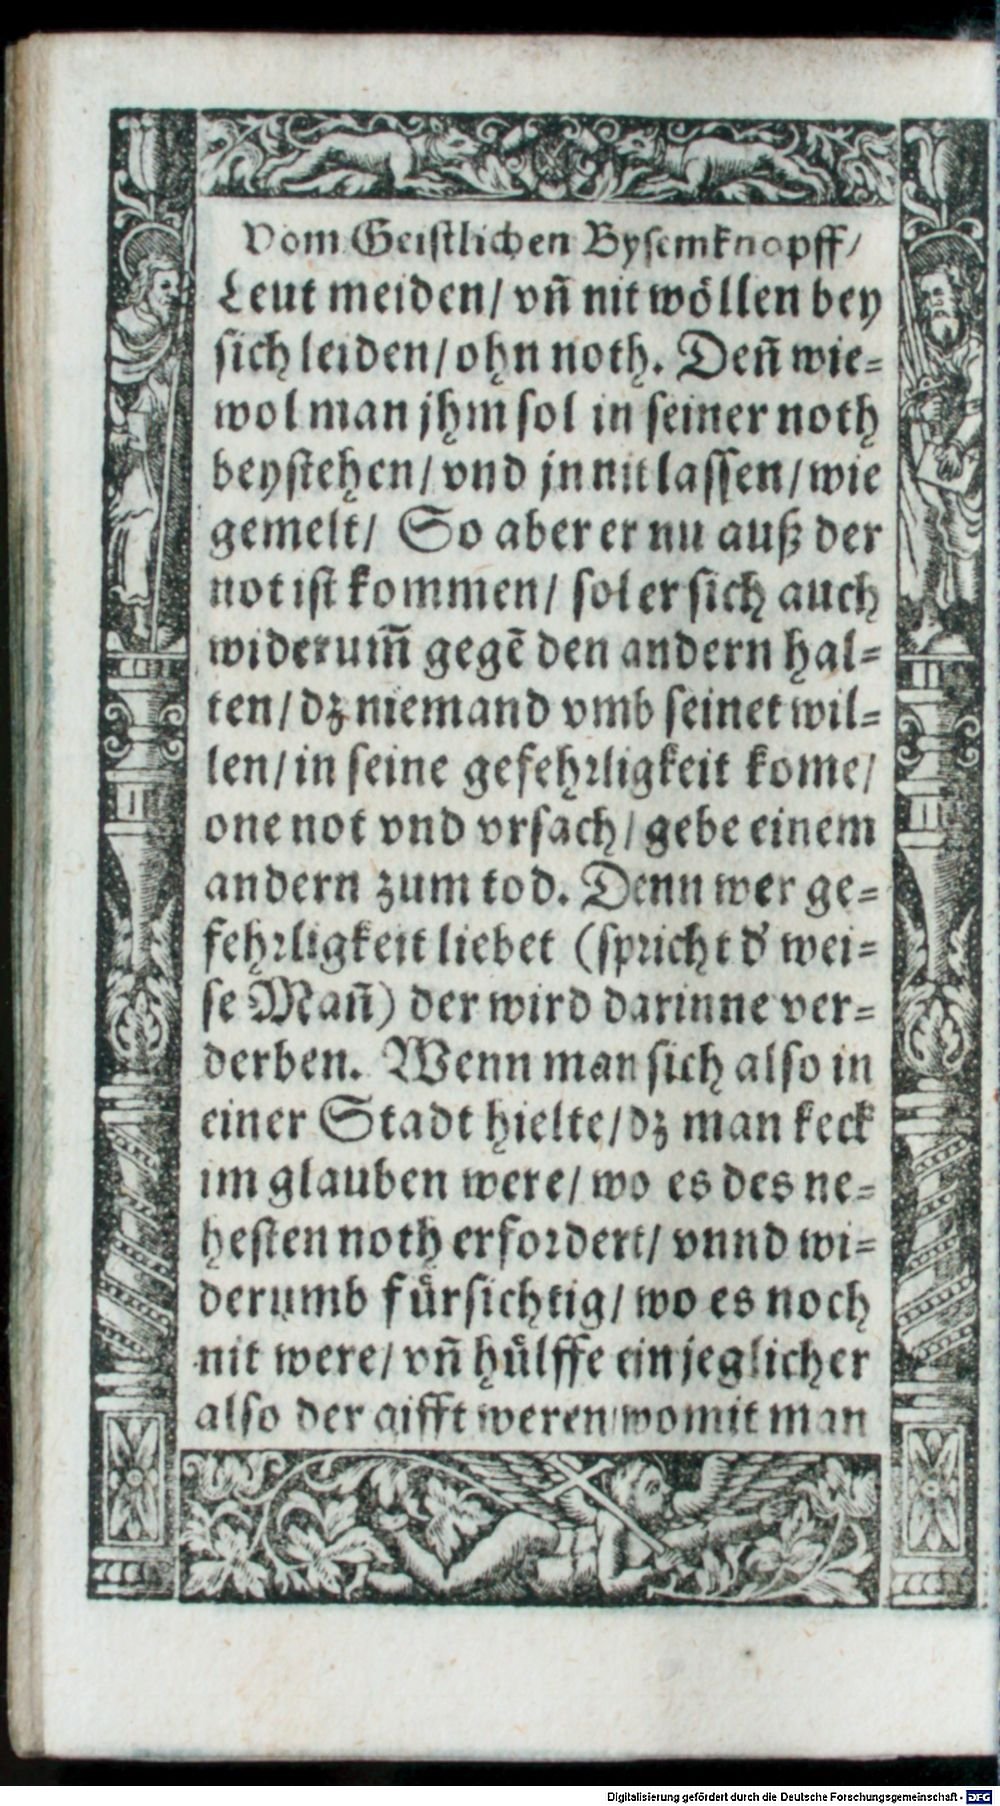 Vom Geistlichen Bysemknopff/
Leut meiden/ vñ nit wöllen bey
sich leiden/ ohn noth. Deñ wie=
wol man jhm sol in seiner noth
beystehen/ vnd jn nit lassen/ wie
gemelt/ So aber er nu auß der
not ist kommen/ sol er sich auch
widerum̃ gegẽ den andern hal=
ten/ dz niemand vmb seinet wil=
len/ in seine gefehrligkeit kome/
one not vnd vrsach/ gebe einem
andern zum tod. Denn wer ge=
fehrligkeit liebet (spricht d' wei=
se Mañ) der wird darinne ver=
derben. Wenn man sich also in
einer Stadt hielte/ dz man keck
im glauben were/ wo es des ne=
hesten noth erfordert/ vnnd wi=
derumb fürsichtig/ wo es noch
nit were/ vñ hülffe ein jeglicher
also der gifft weren/ womit man
Digitalisierung gefördert durch die Deutsche Forschungsgemeinschaft - DFG